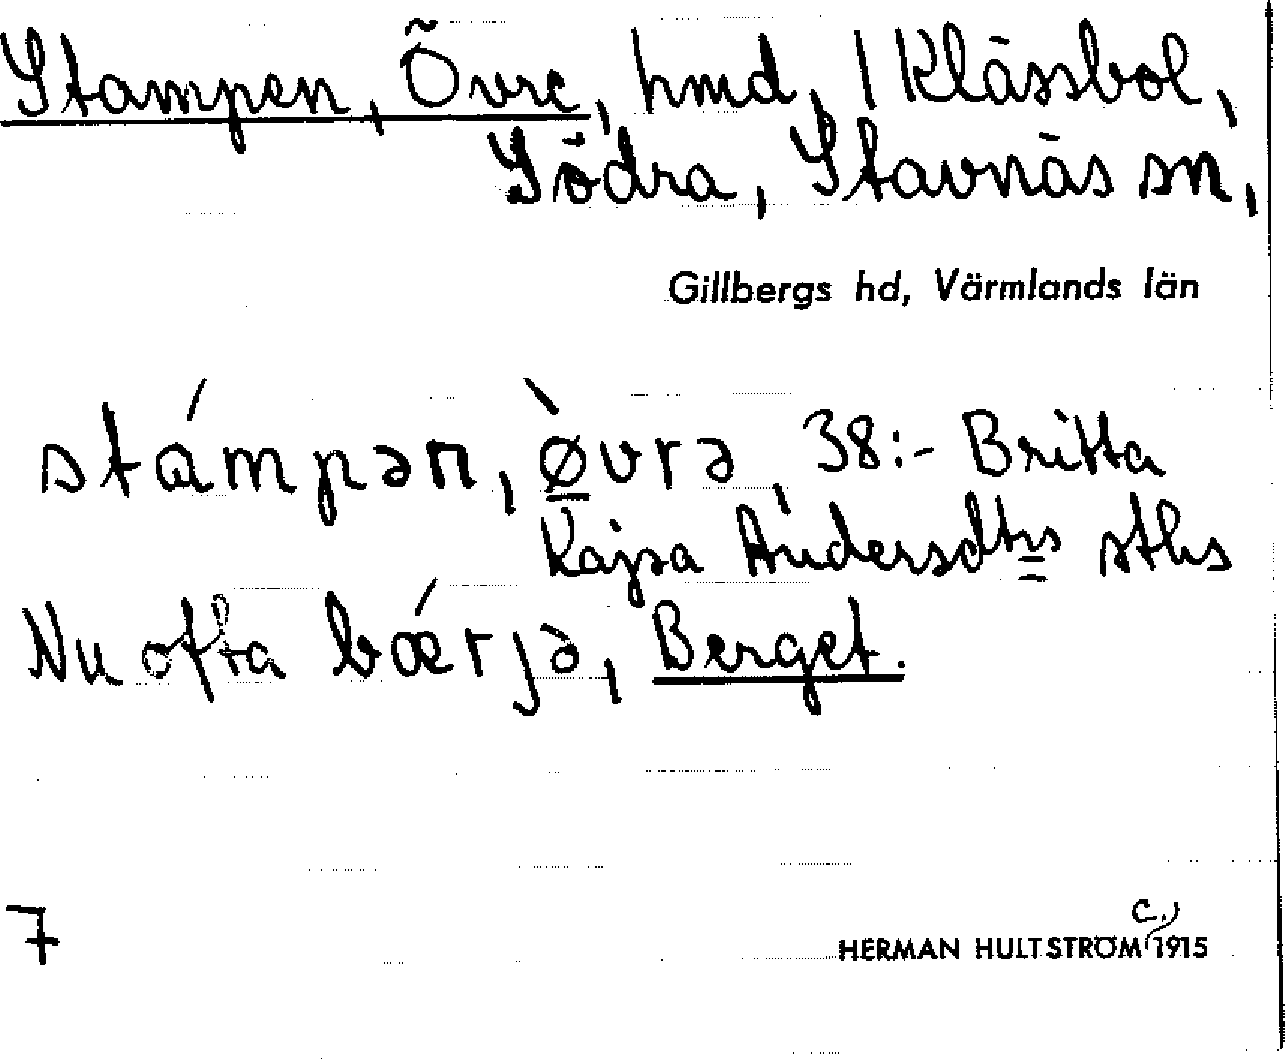 Stampen, Övre, hmd, 1 Klässbol,
Södra, Stavnäs sn,
Gillbergs hd, Värmlands län
stámpən, ø̱̀vrə, 38:- Britta
Kajsa Andersdtrs sths
Nu ofta bǽrjə, Berget.
7
c.)
HERMAN HULTSTRÖM 1915